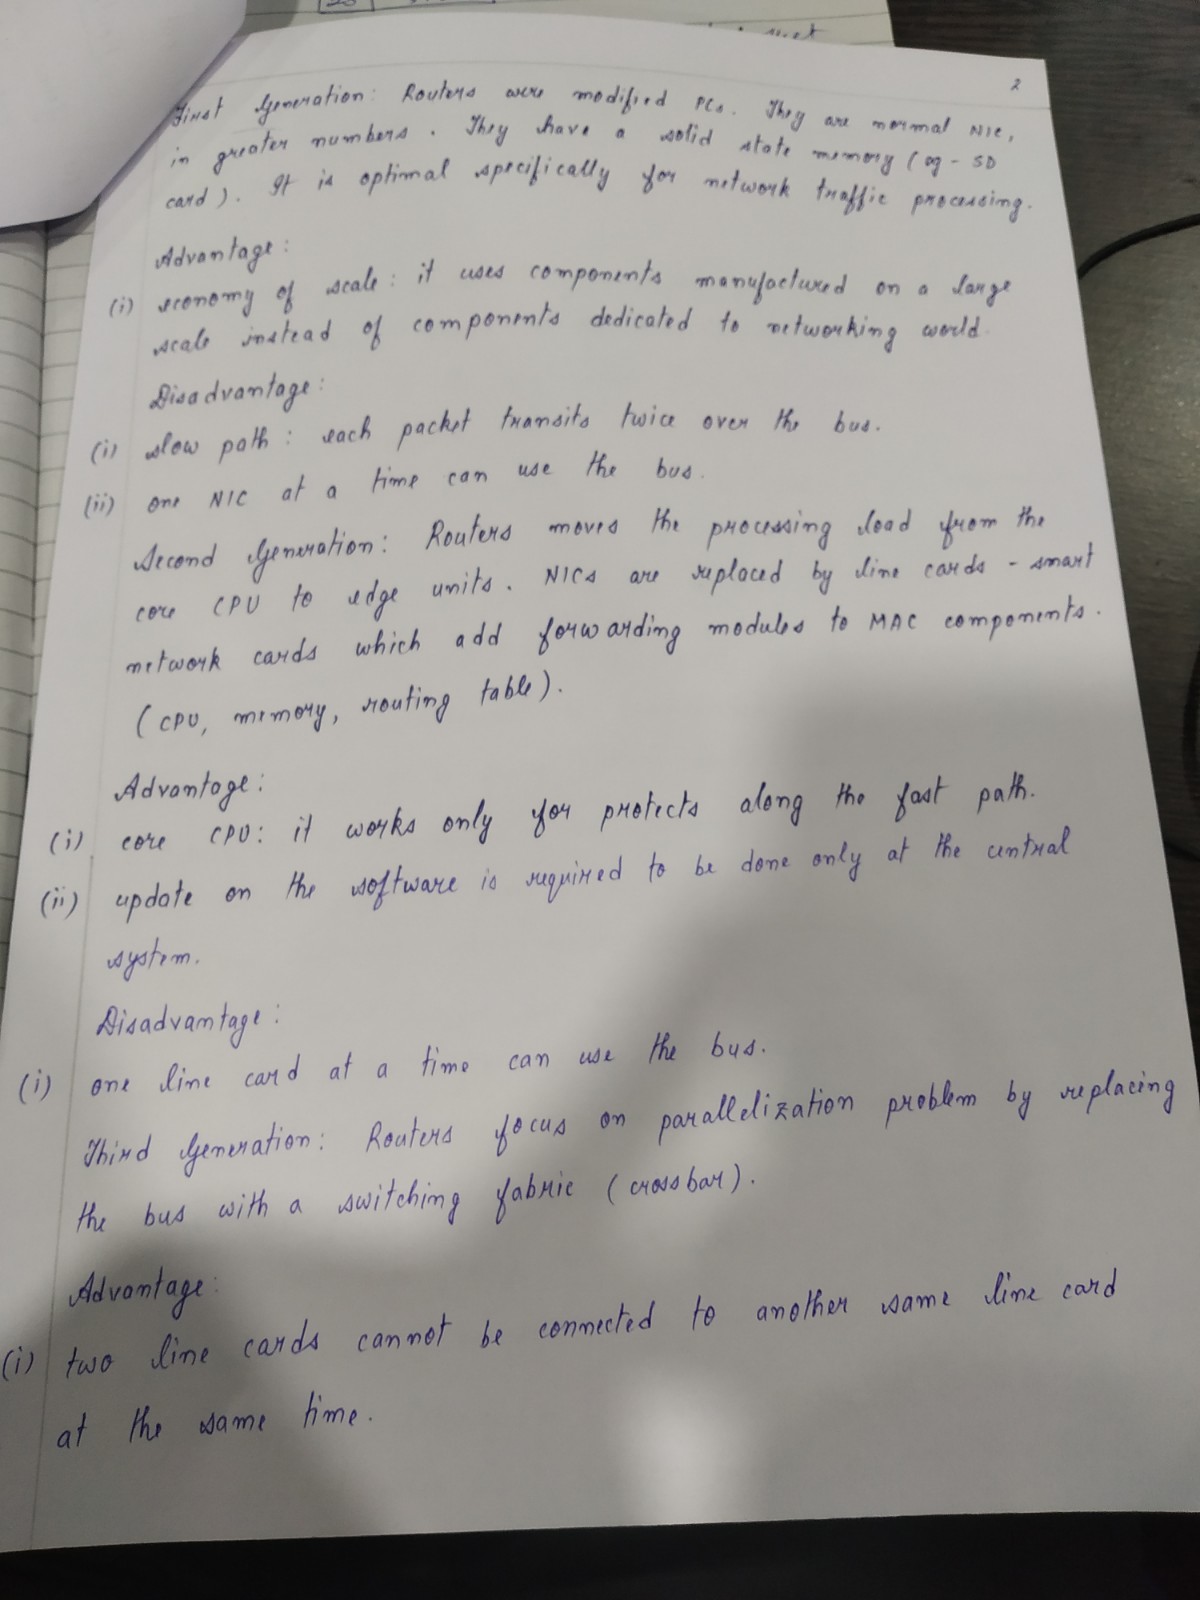 2
First Generation: Routers were modified PCs. They are normal NIC,
in greater numbers. They have a solid state memory (eg - SD
card). It is optimal specifically for network traffic processing.
Advantage:
(i) economy of scale: it uses components manufactured on a large
scale instead of components dedicated to networking world.
Disadvantage:
(i) slow path: each packet transits twice over the bus.
(ii) one NIC at a time can use the bus.
Second Generation: Routers moves the processing load from the
core CPU to edge units. NICs are replaced by line cards - smart
network cards which add forwarding modules to MAC components.
(CPU, memory, routing table).
Advantage:
(i) core CPU: it works only for protects along the fast path.
(ii) update on the software is required to be done only at the central
system.
Disadvantage:
(i) one line card at a time can use the bus.
Third Generation: Routers focus on parallelization problem by replacing
the bus with a switching fabric (crossbar).
Advantage:
(i) two line cards cannot be connected to another same line card
at the same time.